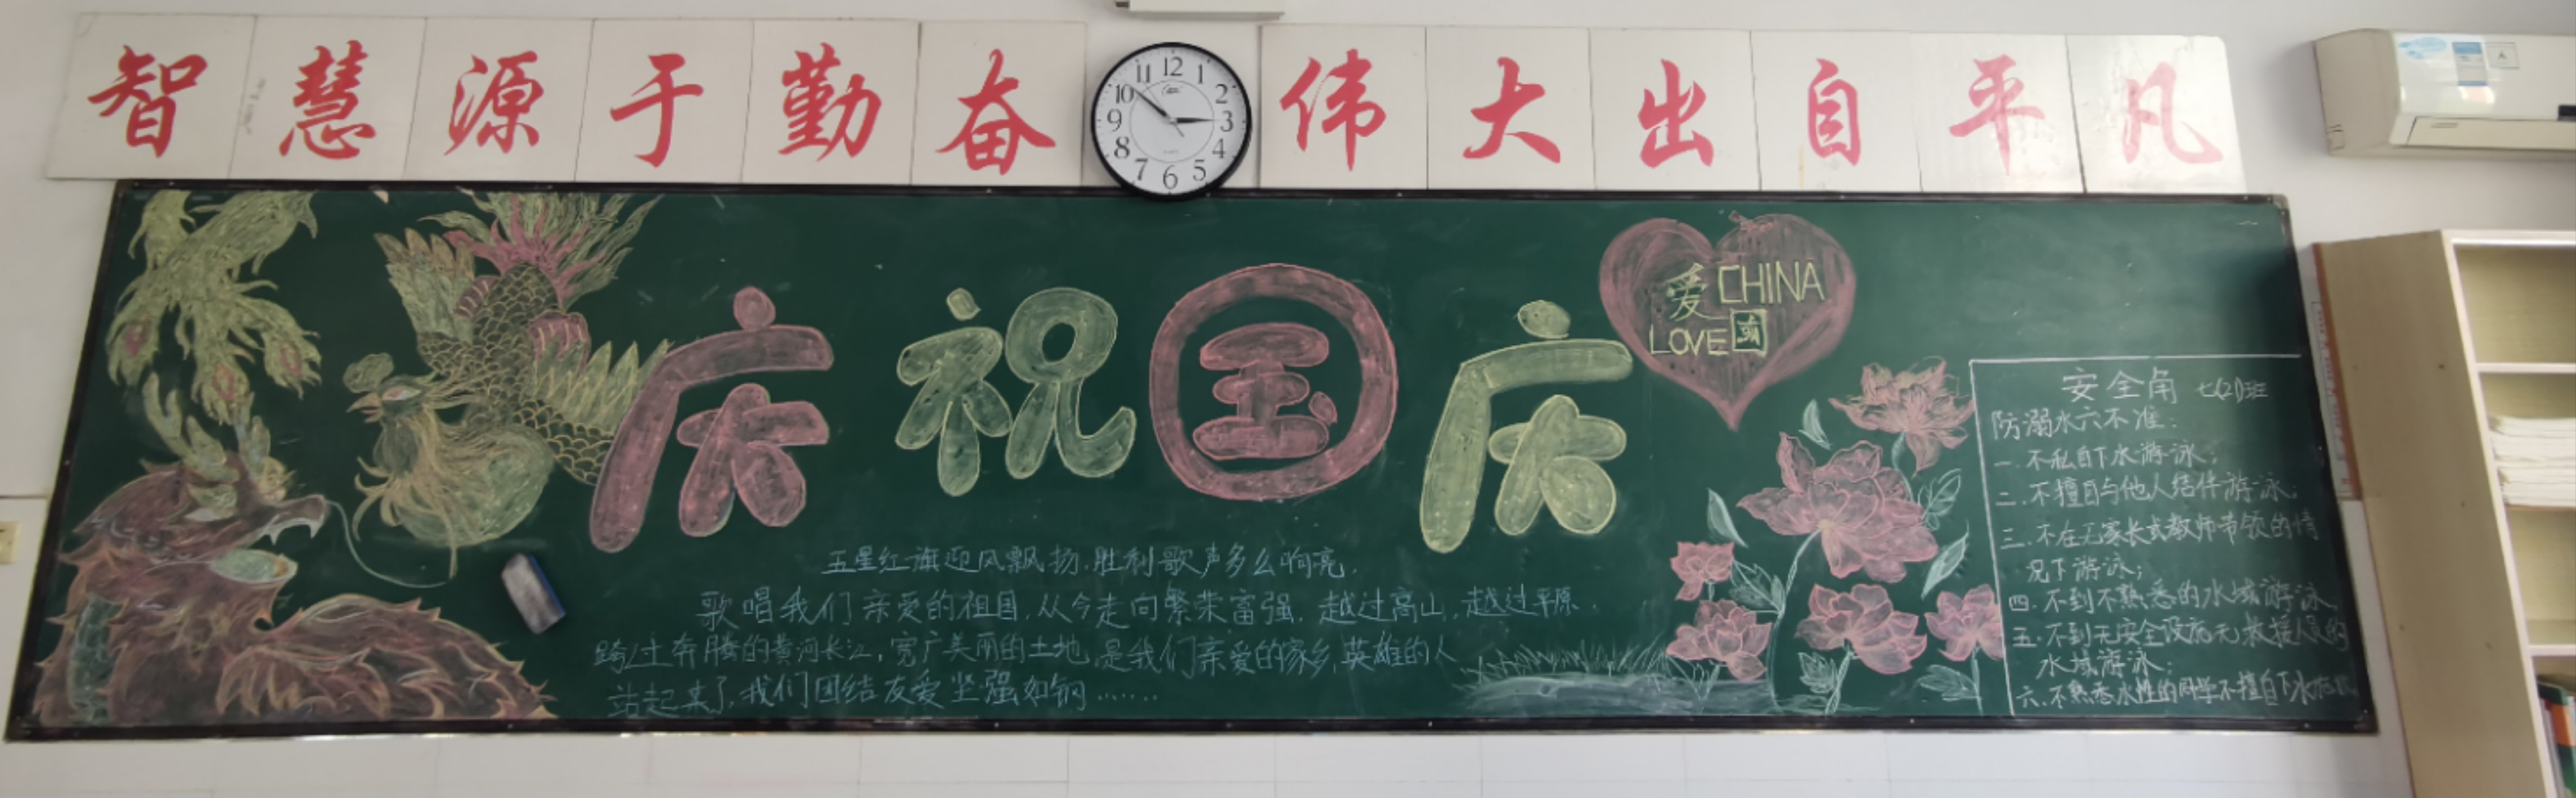 智慧源于勤奋
伟大出自平凡
12
1
2
3
4
5
6
7
8
9
10
11
庆祝国庆
爱CHINA
LOVE国
五星红旗迎风飘扬,胜利歌声多么响亮,
歌唱我们亲爱的祖国,从今走向繁荣富强.越过高山,越过平原.
跨过奔腾的黄河长江,宽广美丽的土地,是我们亲爱的家乡,英雄的人
站起来了,我们团结友爱坚强如钢……
安全角 七(2)班
防溺水六不准:
一.不私自下水游泳;
二.不擅自与他人结伴游泳;
三.不在无家长或教师带领的情
况下游泳;
四.不到不熟悉的水域游泳
五.不到无安全设施无救援人员的
水域游泳;
六.不熟悉水性的同学不擅自下水施救